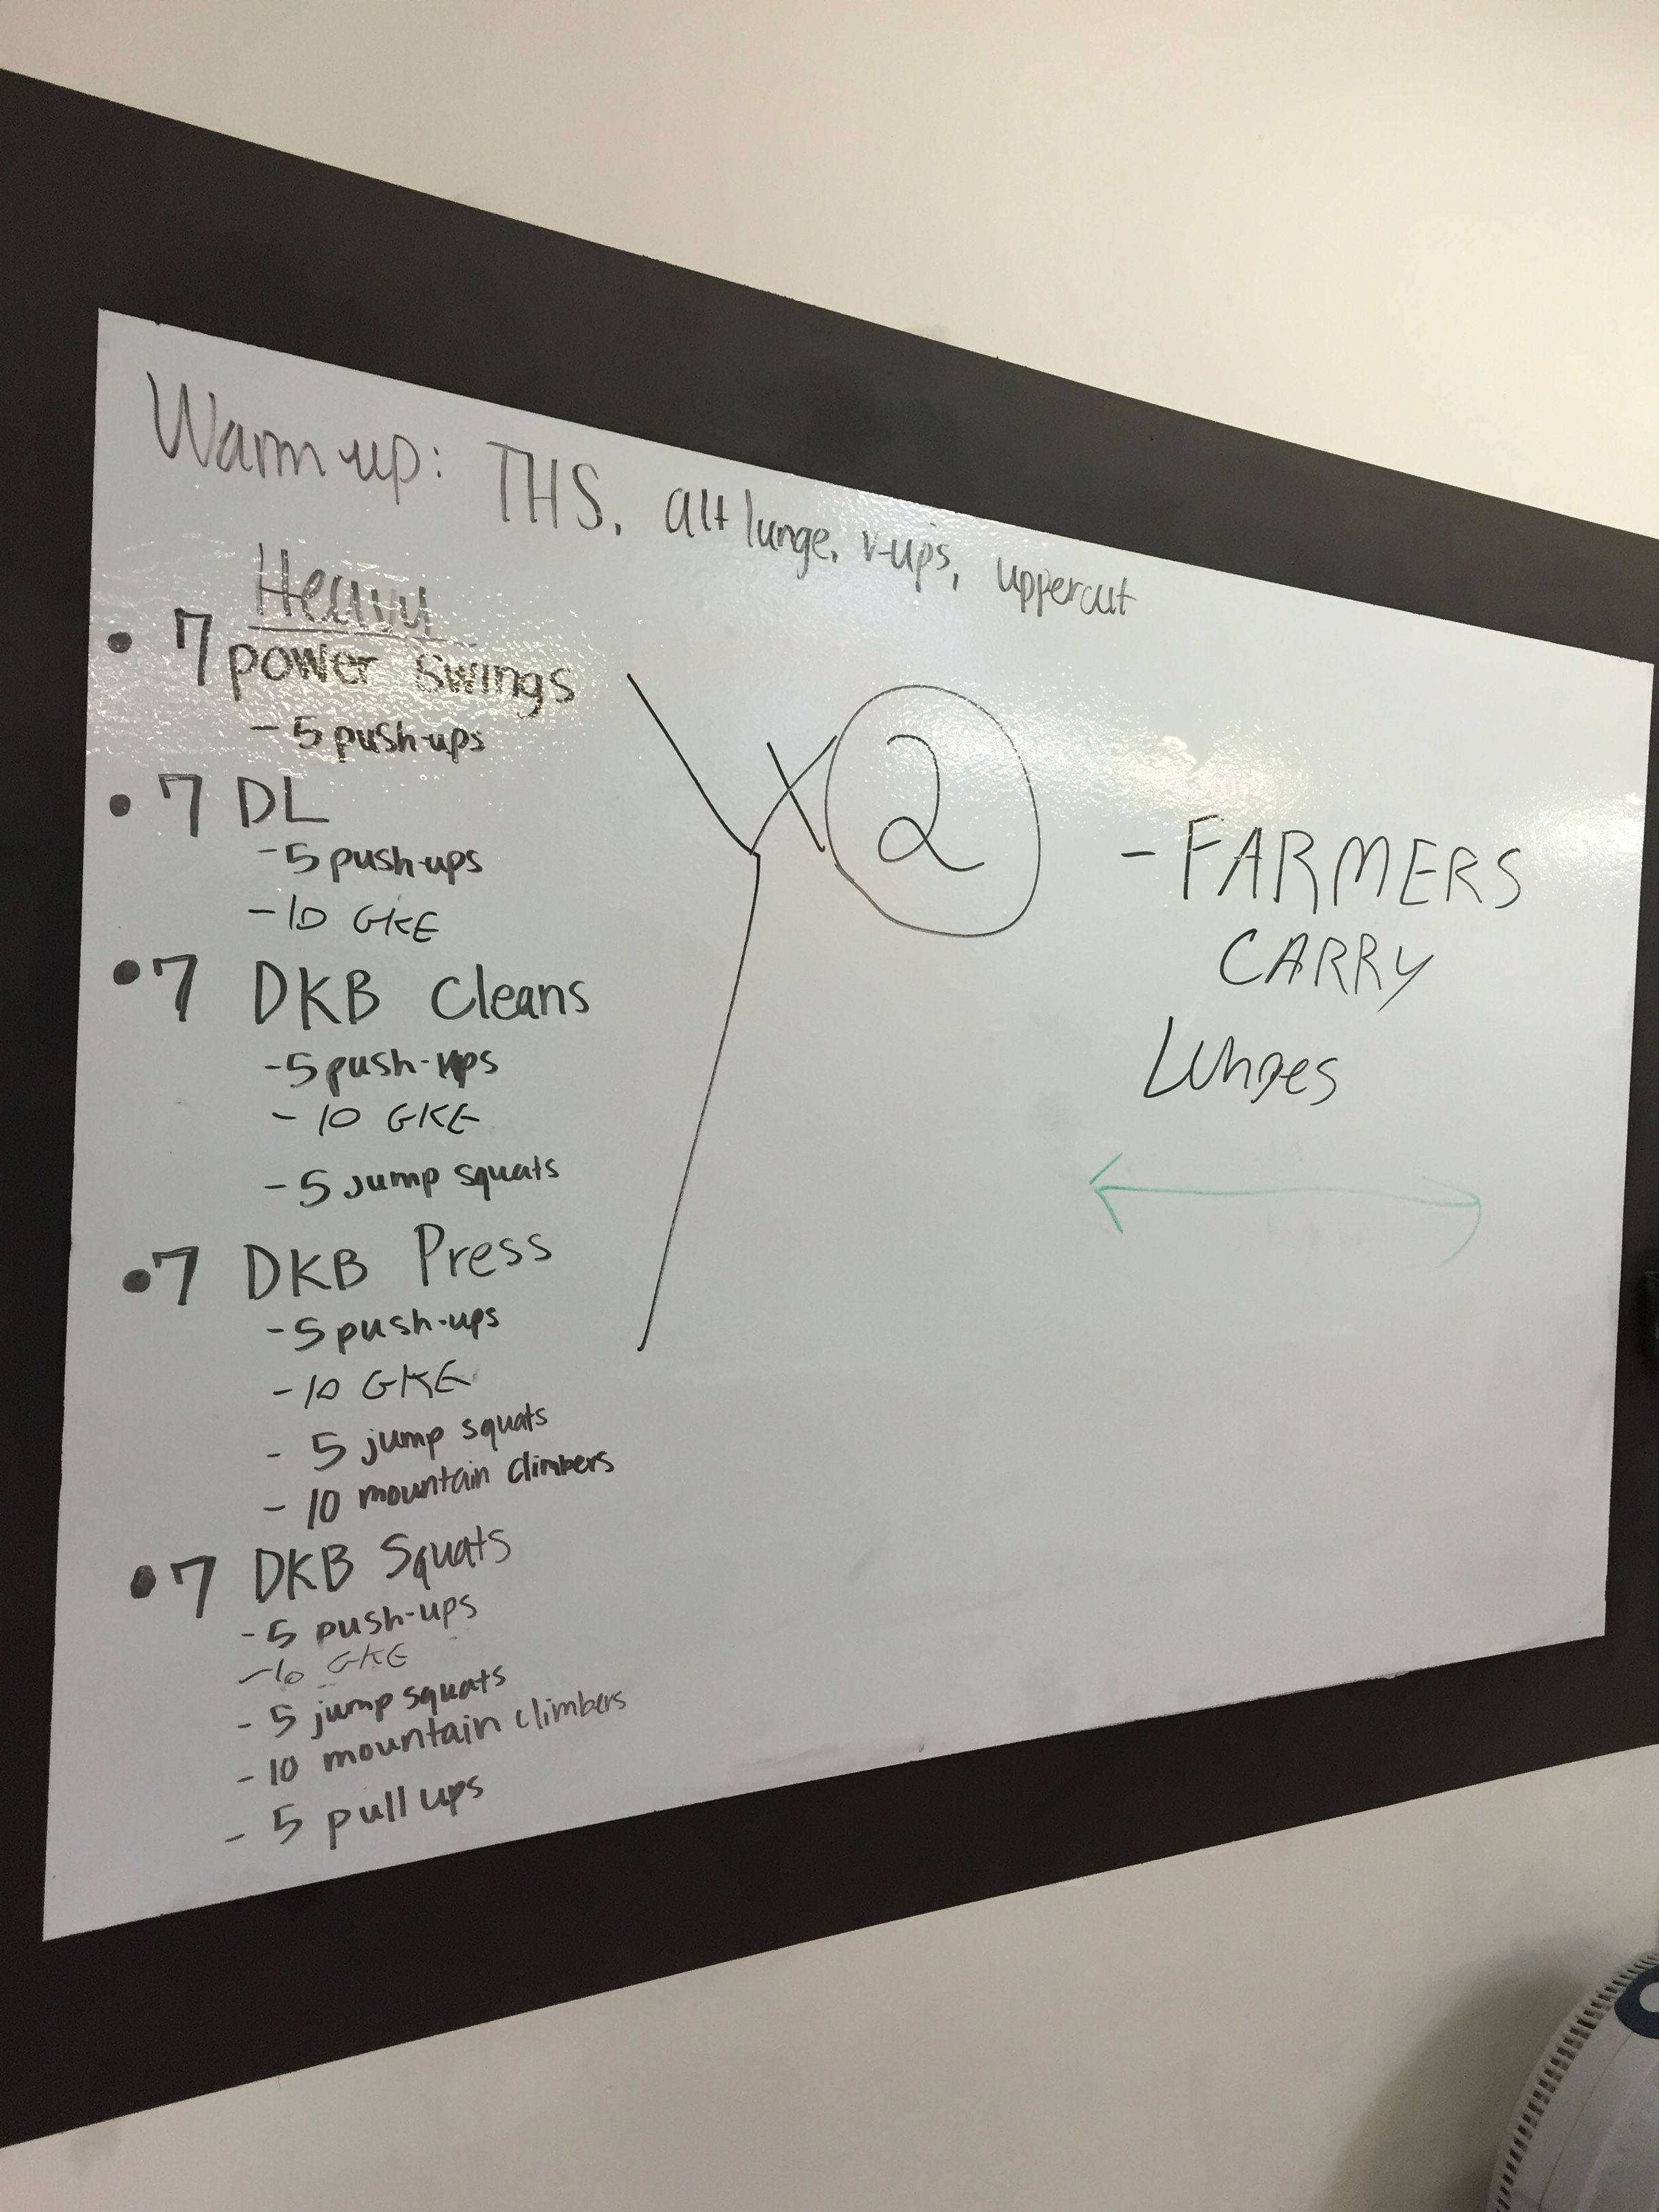 Warm up: THS, alt lunge, v-ups, uppercut
Heavy
• 7 power swings
- 5 push-ups
• 7 DL
- 5 push-ups
- 10 GKE
• 7 DKB Cleans
- 5 push-ups
- 10 GKE
- 5 jump squats
• 7 DKB Press
- 5 push-ups
- 10 GKE
- 5 jump squats
- 10 mountain climbers
• 7 DKB Squats
- 5 push-ups
- 10 GKE
- 5 jump squats
- 10 mountain climbers
- 5 pull ups
X 2
- FARMERS
CARRY
Lunges